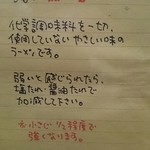 化学調味料を一切、
使用していないやさしい味の
ラーメンです。
弱いと感じられたら、
塩たれ・醤油たれで
加減して下さい。
※小さじ1/2程度で
強くなります。